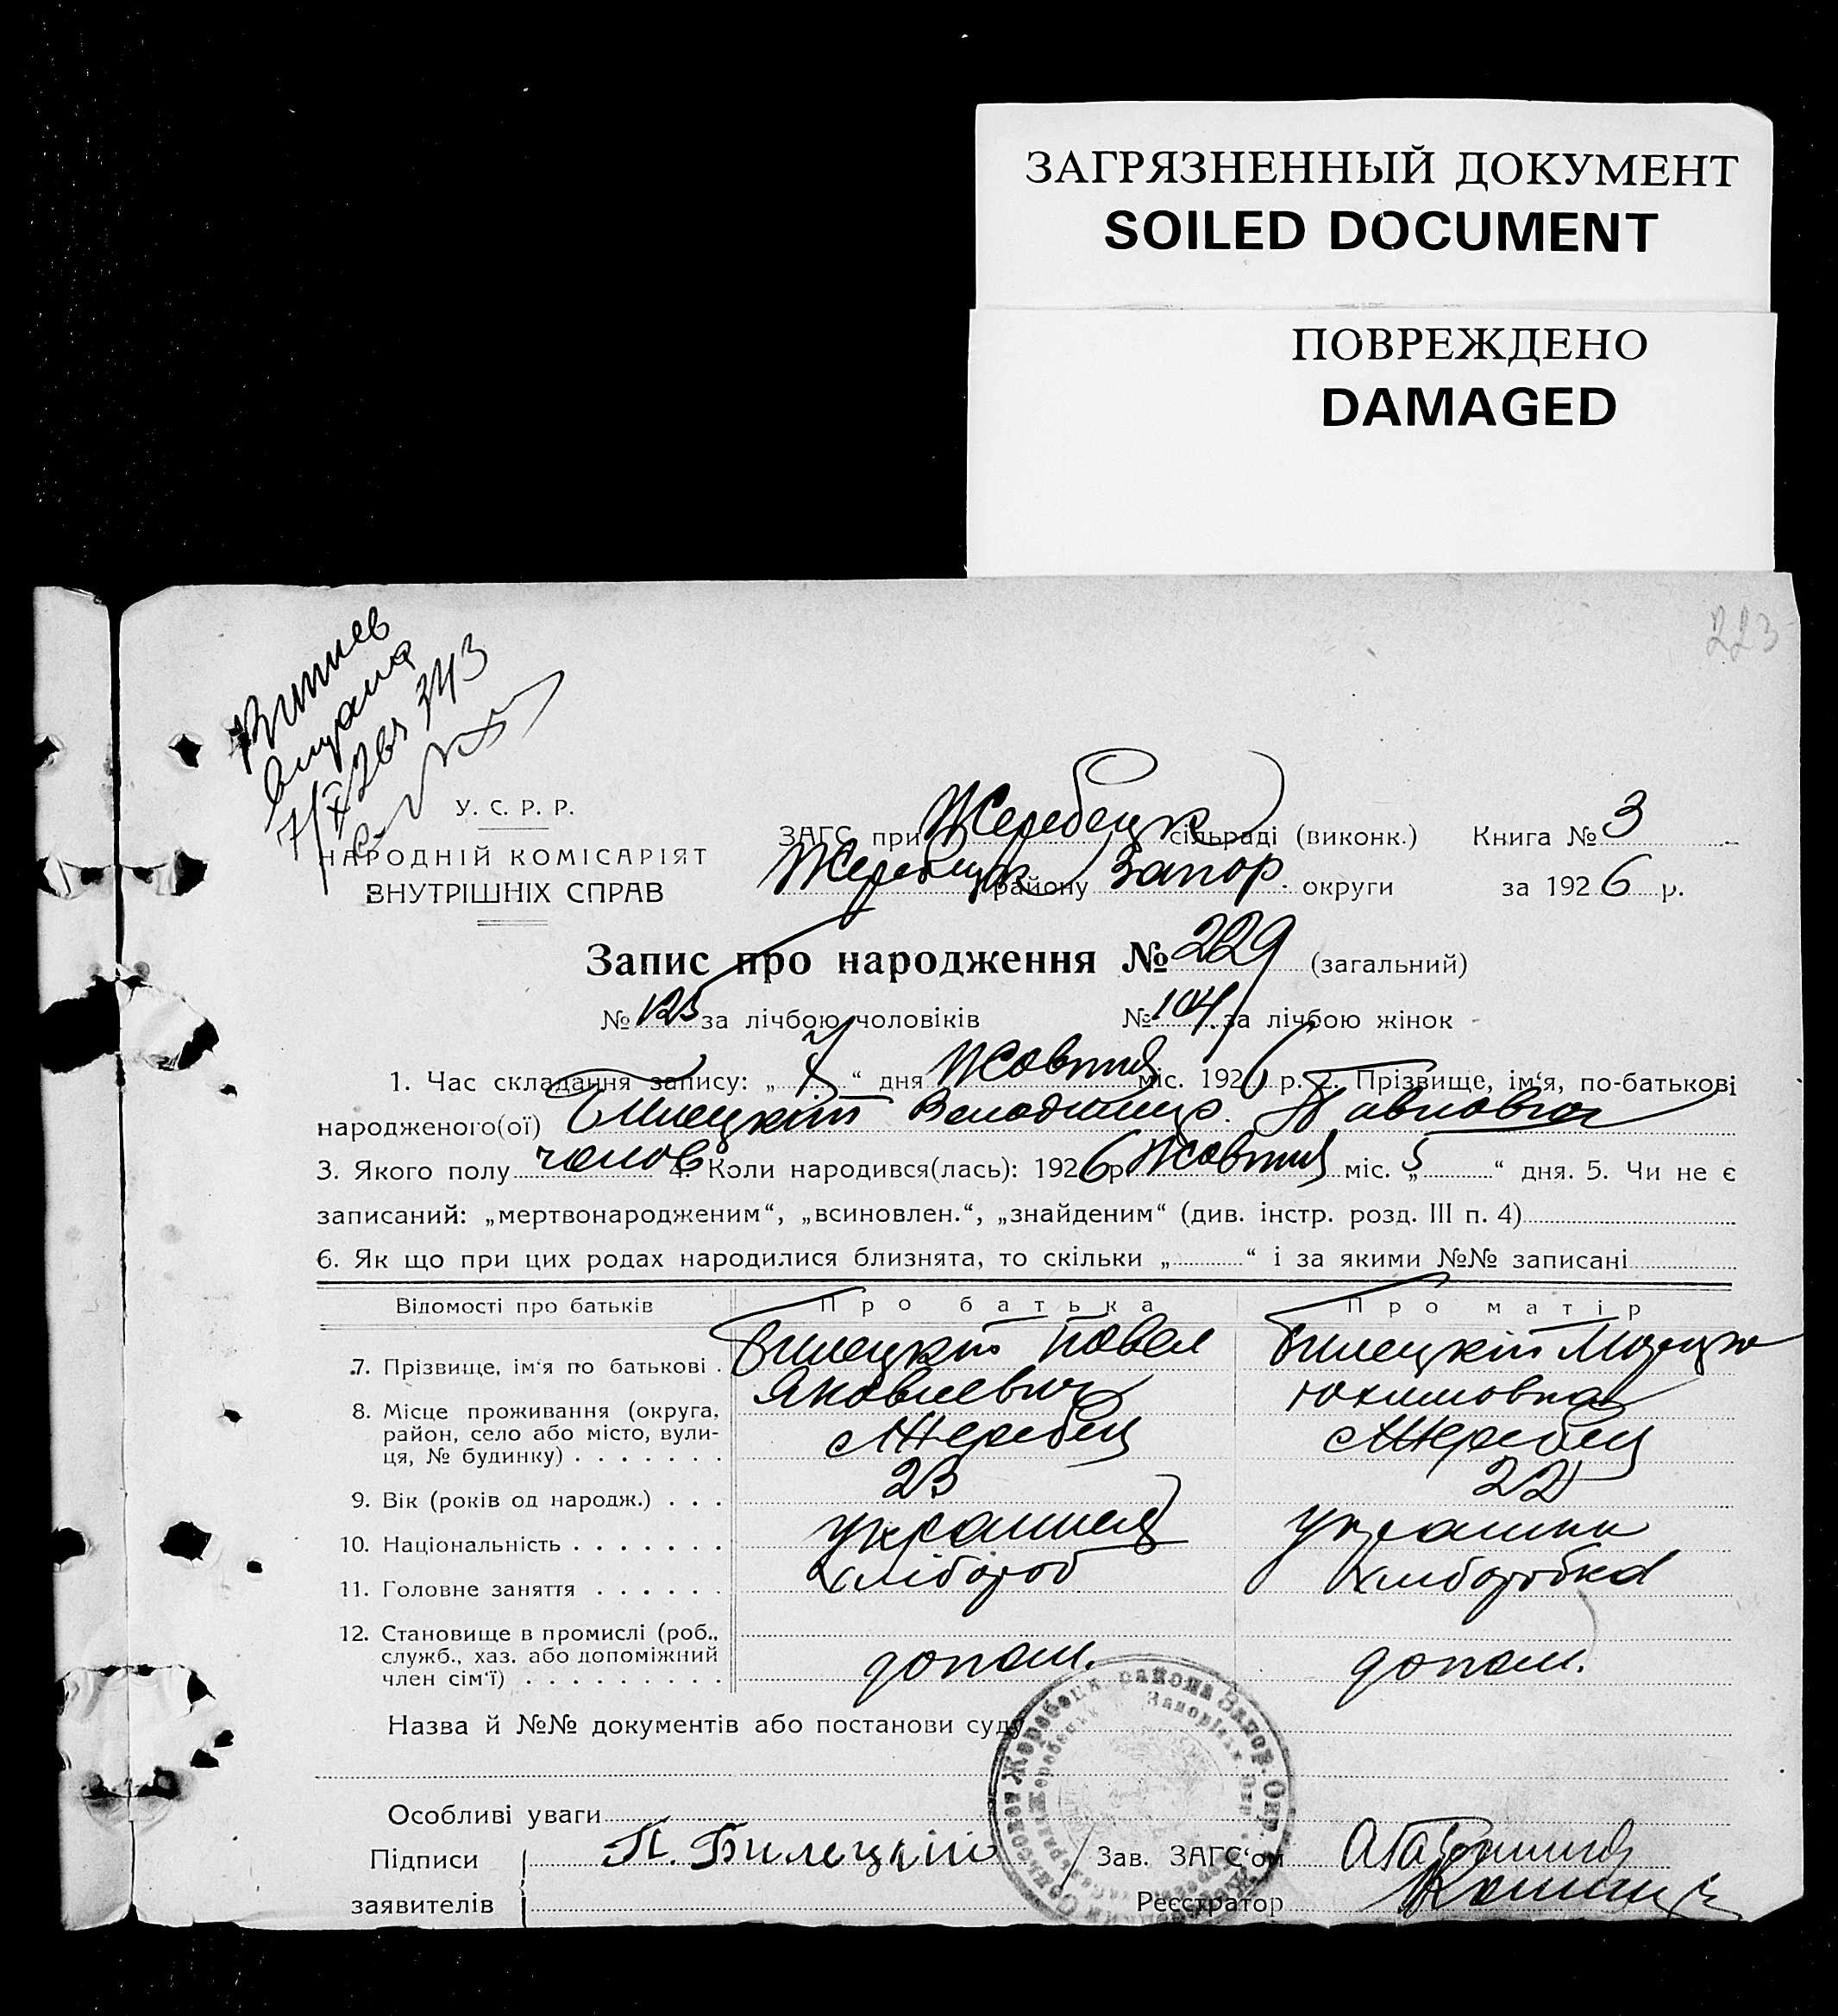 ЗАГРЯЗНЕННЫЙ ДОКУМЕНТ
SOILED DOCUMENT
ПОВРЕЖДЕНО
DAMAGED
223
Витяг
видана
7/X 26 343
У. С. Р. Р.
НАРОДНІЙ КОМІСАРІЯТ
ВНУТРІШНІХ СПРАВ
ЗАГС при Жеребецк сільраді (виконк.) Книга № 3
Жеребецк району Запор. округи за 1926 р.
Запис про народження № 229 (загальний)
№ 125 за лічбою чоловіків № 104 за лічбою жінок
1. Час складання запису: „ 7 “ дня Жовтня міс. 1926 р. 2. Прізвище, ім‘я, по-батькові
народженого(ої) Билецкий Володимир Павлович
3. Якого полу чолов 4. Коли народився(лась): 1926 р Жовтня міс. „ 5 “ дня. 5. Чи не є
записаний: „мертвонародженим“, „всиновлен.“, „знайденим“ (див. інстр. розд. III п. 4)
6. Як що при цих родах народилися близнята, то скільки „ “ і за якими №№ записані
Відомості про батьків Про батька Про матір
7. Прізвище, ім‘я по батькові . Билецкий Павел Билецкий
Яковлевич Юхимовна
8. Місце проживання (округа,
район, село або місто, вули-
ця, № будинку) . . . . . . . с Жеребец с Жеребец
9. Вік (років од народж.) . . . 23 22
10. Національність . . . . . . . украинец украинка
11. Головне заняття . . . . . . хлібороб хлиборобка
12. Становище в промислі (роб.,
служб., хаз. або допоміжний
член сім‘ї) . . . . . . . . . допом. допом.
Назва й №№ документів або постанови суду
Особливі уваги
Підписи П. Билецкий Зав. ЗАГС‘ом
заявителів Реєстратор